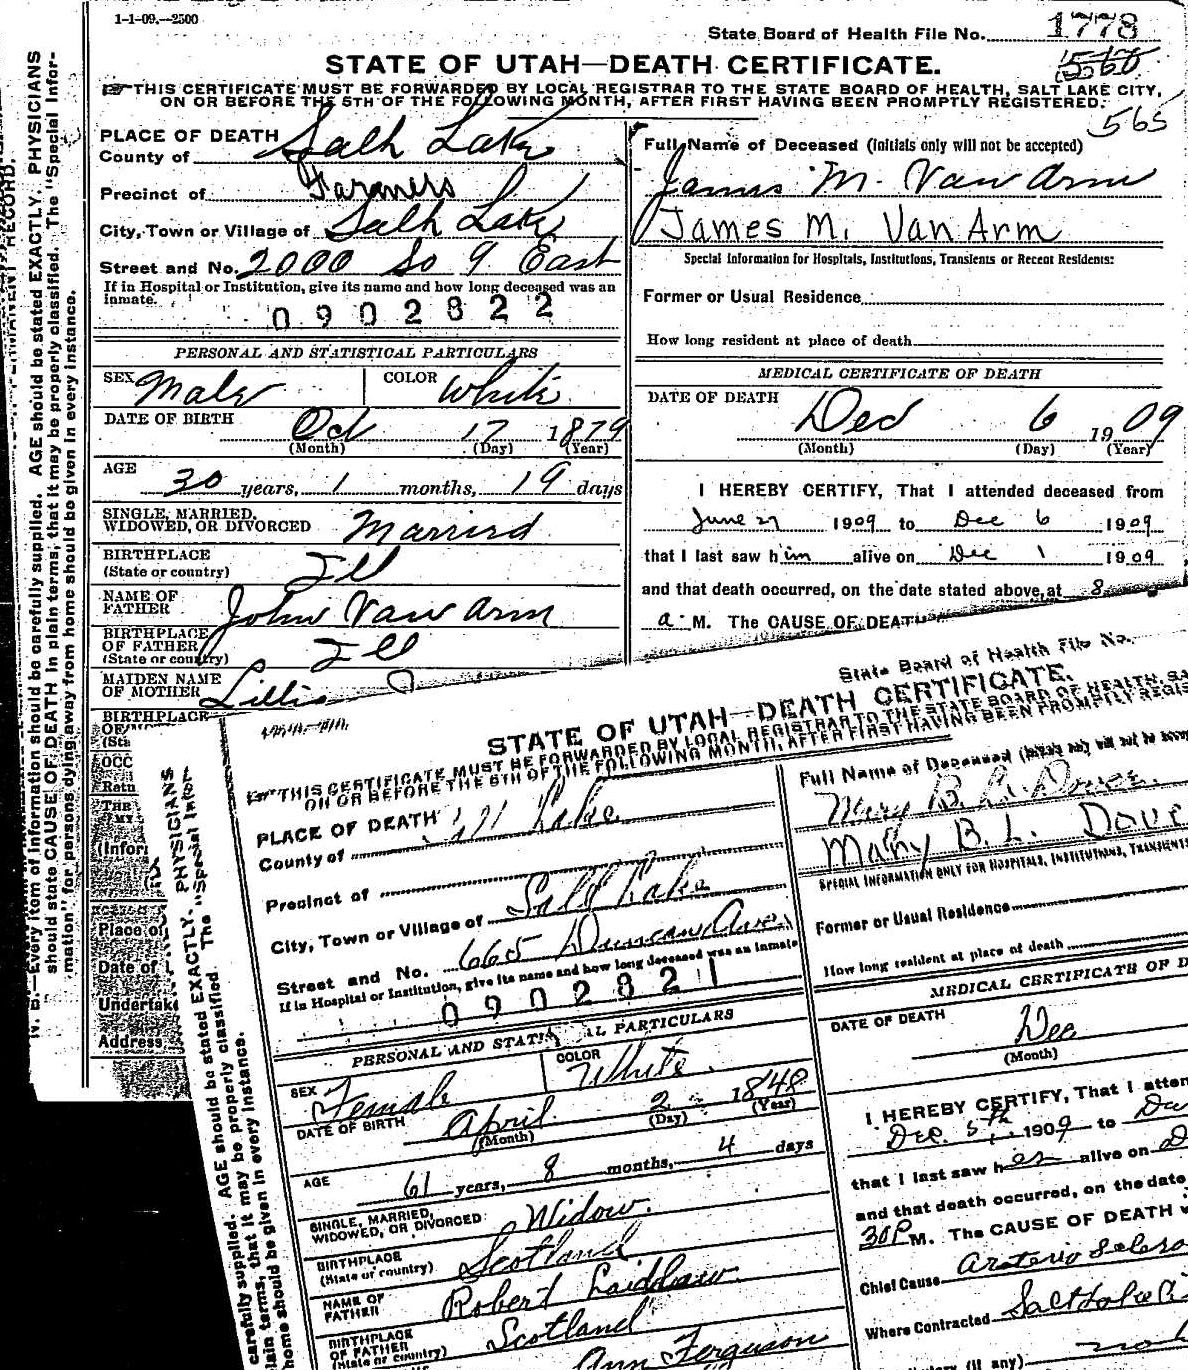 1-1-09.—2500
State Board of Health File No. 1778
556
565
STATE OF UTAH—DEATH CERTIFICATE.
THIS CERTIFICATE MUST BE FORWARDED BY LOCAL REGISTRAR TO THE STATE BOARD OF HEALTH, SALT LAKE CITY,
ON OR BEFORE THE 5TH OF THE FOLLOWING MONTH, AFTER FIRST HAVING BEEN PROMPTLY REGISTERED.
PLACE OF DEATH
County of Salt Lake
Precinct of Farmers
City, Town or Village of Salt Lake
Street and No. 2000 So 9 East
If in Hospital or Institution, give its name and how long deceased was an
inmate.
0902822
PERSONAL AND STATISTICAL PARTICULARS
SEX Male COLOR White
DATE OF BIRTH Oct 17 1879
(Month) (Day) (Year)
AGE
30 years, 1 months, 19 days
SINGLE, MARRIED,
WIDOWED, OR DIVORCED Married
BIRTHPLACE
(State or country) Ill
NAME OF
FATHER John Van Arm
BIRTHPLACE
OF FATHER
(State or country) Ill
MAIDEN NAME
OF MOTHER Lillis
BIRTHPLACE
Place of
Date of
Undertak
Address
Full Name of Deceased (Initials only will not be accepted)
James M. Van Arm
James M. Van Arm
Special Information for Hospitals, Institutions, Transients or Recent Residents:
Former or Usual Residence
How long resident at place of death
MEDICAL CERTIFICATE OF DEATH
DATE OF DEATH
Dec 6 1909
(Month) (Day) (Year)
I HEREBY CERTIFY, That I attended deceased from
June 27 1909 to Dec 6 1909
that I last saw him alive on Dec 1 1909
and that death occurred, on the date stated above, at 8
a. M. The CAUSE OF DEATH
N. B.—Every item of information should be carefully supplied. AGE should be stated EXACTLY. PHYSICIANS
should state CAUSE OF DEATH in plain terms, that it may be properly classified. The "Special Infor-
mation" for persons dying away from home should be given in every instance.
State Board of Health File No.
STATE OF UTAH—DEATH CERTIFICATE.
THIS CERTIFICATE MUST BE FORWARDED BY LOCAL REGISTRAR TO THE STATE BOARD OF HEALTH, SA
ON OR BEFORE THE 5TH OF THE FOLLOWING MONTH, AFTER FIRST HAVING BEEN PROMPTLY REGIS
PLACE OF DEATH
County of Lake
Precinct of
City, Town or Village of Salt Lake
Street and No. 665 Duncan Ave.
If in Hospital or Institution, give its name and how long deceased was an inmate
0902821
PERSONAL AND STATI AL PARTICULARS
SEX Female COLOR White.
DATE OF BIRTH April 2 1848
(Month) (Day) (Year)
AGE 61 years, 8 months, 4 days
SINGLE, MARRIED,
WIDOWED, OR DIVORCED Widow.
BIRTHPLACE
(State or country) Scotland
NAME OF
FATHER Robert Laidlaw.
BIRTHPLACE
OF FATHER
(State or country) Scotland
Ann Ferguson
Full Name of Deceased
Mary B. L. Dove.
Mary B. L. Dove
SPECIAL INFORMATION ONLY FOR HOSPITALS, INSTITUTIONS, TRANSIENTS
Former or Usual Residence
How long resident at place of death
MEDICAL CERTIFICATE OF D
DATE OF DEATH
Dec
(Month)
I HEREBY CERTIFY, That I atten
Dec. 5th 1909 to
that I last saw her alive on D
and that death occurred, on the date
30 P M. The CAUSE OF DEATH w
Chief Cause Arterio Sclero
Where Contracted Salt Lake Ci
(if any)
PHYSICIANS
carefully supplied. AGE should be stated EXACTLY.
lain terms, that it may be properly classified. The "Special Infor
home should be given in every instance.